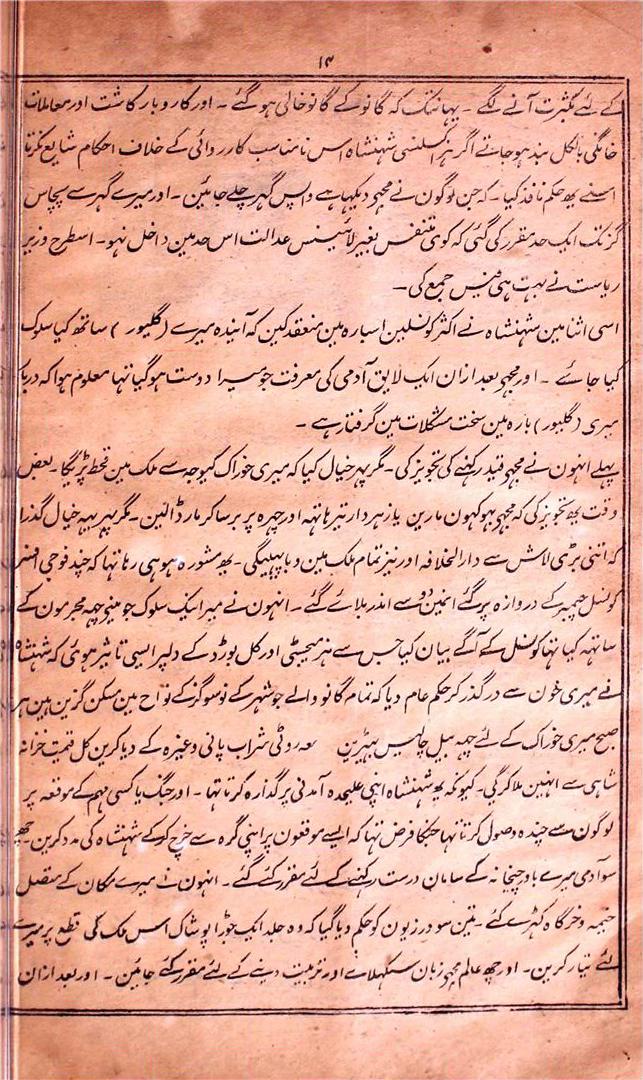 ۱۳
کے لئے بکثرت آنے لگے ۔ یہانتک کہ گانو کے گانو خالی ہو گئے ۔ اور کاروبار کاشت اور معاملات
خانگی بالکل بند ہو جاتے اگر ہز اکسلنسی شہنشاہ اس نامناسب کارروائی کے خلاف احکام شایع نکرتا
اسنے یھ حکم نافذ کیا ۔ کہ جن لوگون نے مجہو دیکہا ہے واپس گہر چلے جائین ۔ اور میرے گہر سے پچاس
گز تک ایک حد مقرر کی گئی کہ کوئی متنفس بغیر لائیسنس عدالت اس حد مین داخل نہو ۔ اسطرح وزیر
ریاست نے بہت ہی فیس جمع کی ۔
اسی اثنا مین شہنشاہ نے اکثر کونسلین اسبارہ مین منعقد کین کہ آیندہ میرے (گلیور) ساتھ کیا سلوک
کیا جائے ۔ اور مجہو بعد ازان ایک لایق آدمی کی معرفت جو میرا دوست ہو گیا تہا معلوم ہوا کہ دربار
میری (گلیور) بارہ مین سخت مشکلات مین گرفتار ہے ۔
پہلے انہون نے مجہو قید رکہنے کی تجویز کی ۔ مگر پہر خیال کیا کہ میری خوراک کیوجہ سے ملک مین قحط پڑیگا ۔ بعض
وقت یھ تجویز کی کہ مجہو بہوکہون مارین یا زہردار تیر ہاتہہ اور چہرہ پر برسا کر مار ڈالین ۔ مگر پہر یہہ خیال گذرا
کہ اتنی بڑی لاش سے دارالخلافہ اور نیز تمام ملک مین وبا پہیلیگی ۔ یھ مشورہ ہو ہی رہا تہا کہ چند فوجی افسر
کونسل چیمبر کے دروازہ پر گئے انمین دو سے اندر بلائے گئے ۔ انہون نے میرا نیک سلوک جو مینے چہہ مجرمون کے
ساتہہ کیا تہا کونسل کے آگے بیان کیا جس سے ہز میجسٹی اور کل بورڈ کے دلپر ایسی تاثیر ہوئی کہ شہنشاہ
نے میری خون سے درگذر کر حکم عام دیا کہ تمام گانو والے جو شہر کے نو سو گز کے نواح مین مسکن گزین ہین ہر
صبح میری خوراک کے لئے چہہ بیل چالیس بہیڑین معہ روٹی شراب پانی وغیرہ کے دیا کرین کل قیمت خزانہ
شاہی سے انہین ملا کریگی ۔ کیونکہ یھ شہنشاہ اپنی علیحدہ آمدنی پر گذارہ کرتا تہا ۔ اور جنگ یا کسی مہم کے موقعہ پر
لوگون سے چندہ وصول کرتا تہا جنکا فرض تہا کہ ایسے موقعون پر اپنی گرہ سے خرچ کر کے شہنشاہ کی مدد کرین ۔ چھ
سو آدمی میرے باورچخانہ کے سامان درست رکہنے کے لئے مقرر کئے گئے ۔ انہون نے میرے مکان کے متصل
خیمہ و خرگاہ کہڑے کئے ۔ تین سو درزیون کو حکم دیا گیا کہ وہ جلد ایک جوڑا پوشاک اس ملک کی قطع پر میرے
لئے تیار کرین ۔ اور چھ عالم مجہو زبان سکہلانے اور تربیت دینے کے لئے مقرر کئے جائین ۔ اور بعد ازان